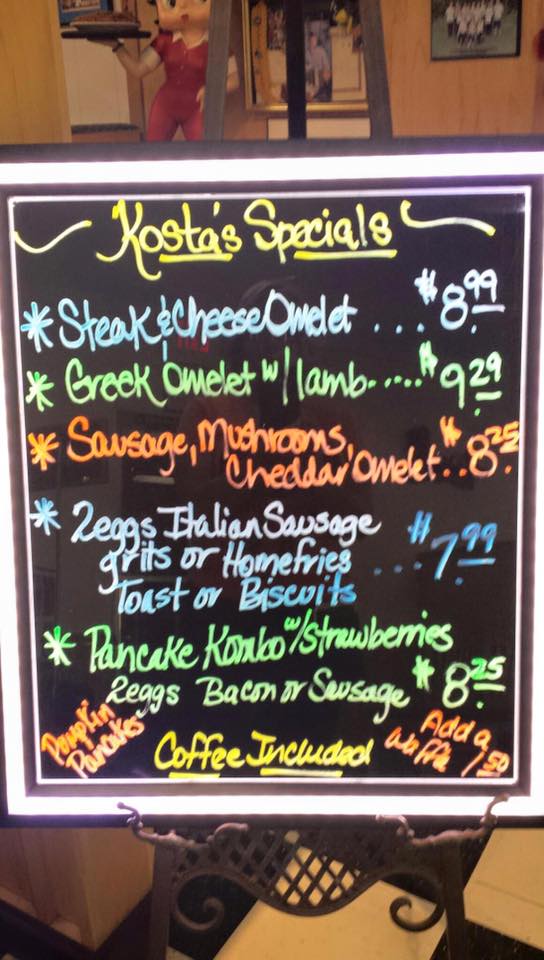 Kosta's Specials
* Steak & Cheese Omelet ... $8.99
* Greek Omelet w/ lamb..... $9.29
* Sausage, Mushrooms,
Cheddar Omelet.. $8.25
* 2eggs Italian Sausage
grits or Homefries ... $7.99
Toast or Biscuits
* Pancake Kombo w/Strawberries
2eggs Bacon or Sausage $8.25
Pumpkin
Pancakes
Coffee Included
Add a
Waffle 1.50